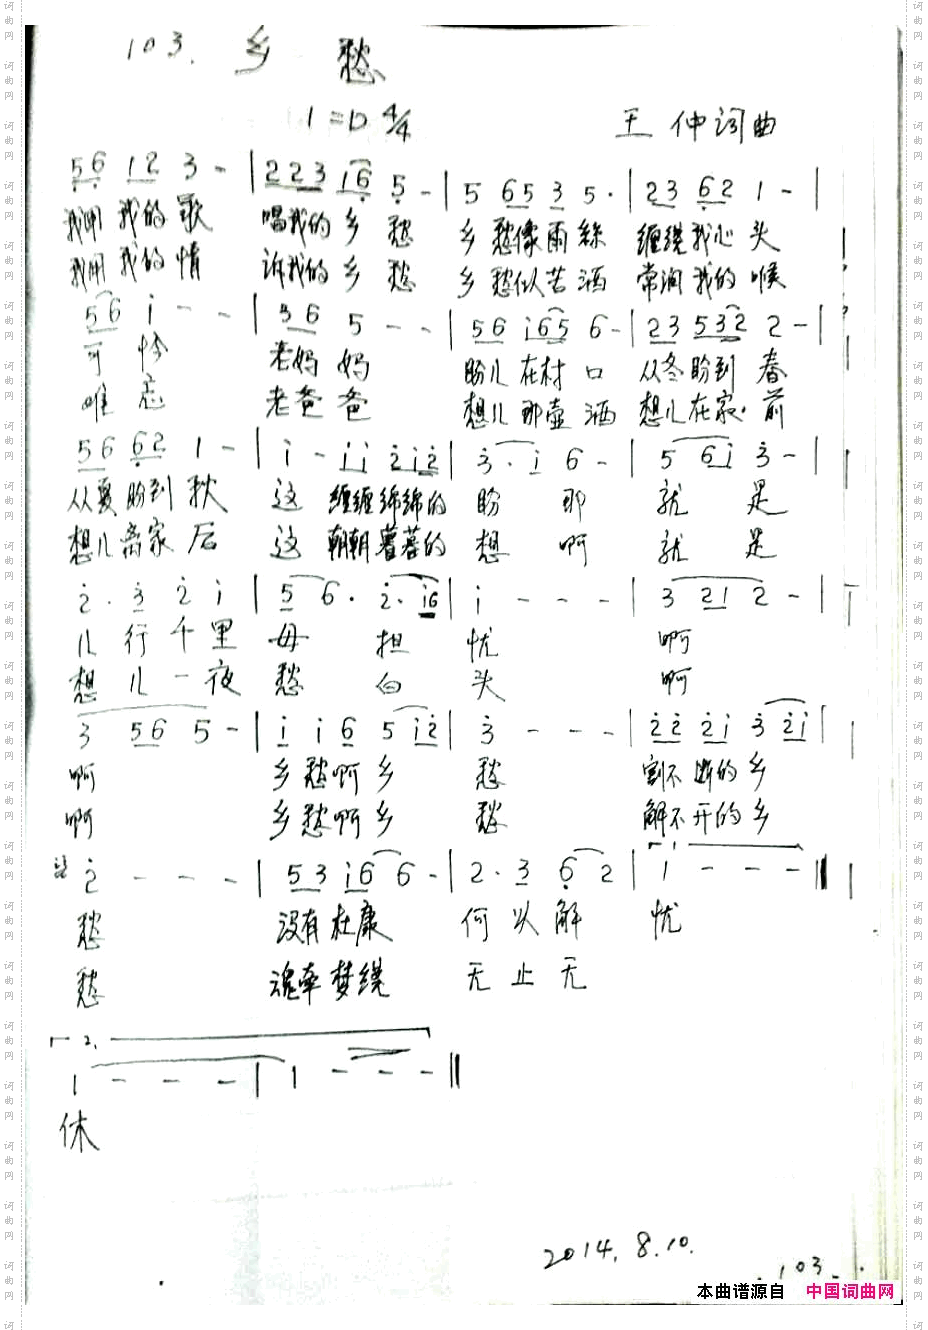 103. 乡 愁
1=D 4/4 王 仲 词曲
56 12 3 - | 223 16 5 - | 5 65 3 5 · | 23 62 1 - |
我用 我的 歌 唱我的 乡 愁 乡 愁像雨絲 缠绕我心 头
我用 我的 情 诉我的 乡 愁 乡 愁似苦酒 常润我的 喉
56 i - - | 36 5 - - | 56 i65 6 - | 23 532 2 - |
可 怜 老妈 妈 盼儿在村口 从冬盼到 春
难 忘 老爸 爸 想儿那壶酒 想儿在家 前
56 62 1 - | i - ii 2i2 | 3 · i 6 - | 5 6i 3 - |
从夏盼到 秋 这 缠缠绵绵的 盼 那 就 是
想儿离家 后 这 朝朝暮暮的 想 啊 就 是
2 · 3 2 i | 5 6 · 2 · i6 | i - - - | 3 21 2 - |
儿 行 千 里 母 担 忧 啊
想 儿 一 夜 愁 白 头 啊
3 56 5 - | i i 6 5 i2 | 3 - - - | 22 2i 3 2i |
啊 乡愁啊乡 愁 割不断的乡
啊 乡愁啊乡 愁 解不开的乡
2 - - - | 53 i6 6 - | 2 · 3 6 2 | 1 - - - ‖
愁 没有杜康 何 以 解 忧
愁 魂牵梦绕 无 止 无
2.
1 - - - | 1 - - - ‖
休
2014.8.10.
103
本曲谱源自 中国词曲网